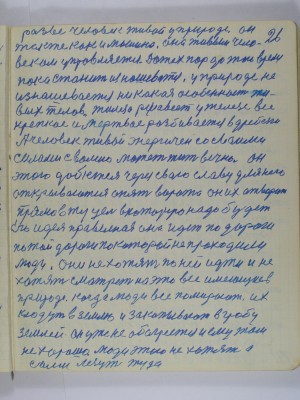 разве человек живой у природе он
тоже так как и машина, она живым чело- 26
веком управляется до тех пор до того время
пока станит изношевоти, у природе не
изнашевается никакая особенност жи-
вых телов, железо ржавеет у железе все
крепкое и мертвое разбивается вдребезги
А человек живой энергичен со своими
силами своими может жит вечно он
этого добьется через свою славу для него
открываются опят ворота он их отворает
прямо в ту цел в которую надо будет
но идея правельная она идет по дороги
по той дороги по которой не проходили
люди, они не хотят по ней идти и не
хотят смотрет на это все имеющиеся
природе, когда люди все помирают их
кладут в землю и закапывают в гробу
землей он уже не обогреется и ему там
не хорошо люди этого не хотят а
сами лезут туда